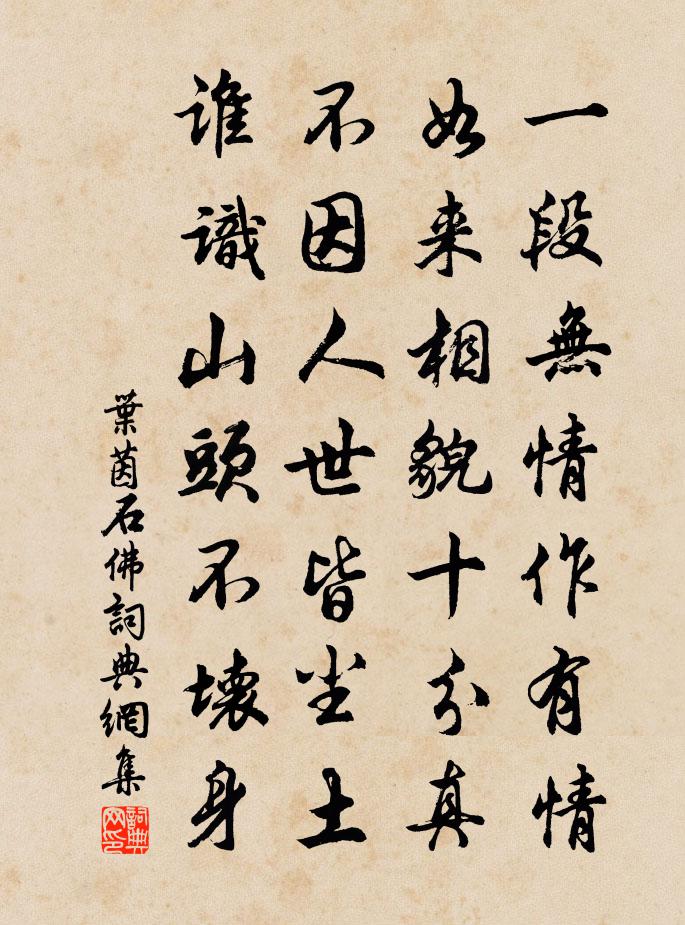 一段無情作有情
如来相貌十分真
不因人世皆尘土
誰識山頭不壞身
葉茵石佛詞典網集
詞典网印